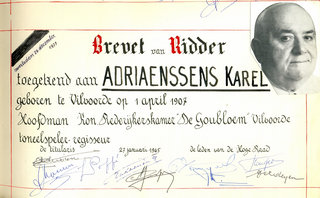 overleden 26 december
1977
Brevet van Ridder
toegekend aan ADRIAENSSENS KAREL
geboren te Vilvoorde op 1 april 1907
Hoofdman Kon Rederijkerskamer "De Goubloem" Vilvoorde
toneelspeler-regisseur
de titularis 27 januari 1965 de leden van de Hoge Raad